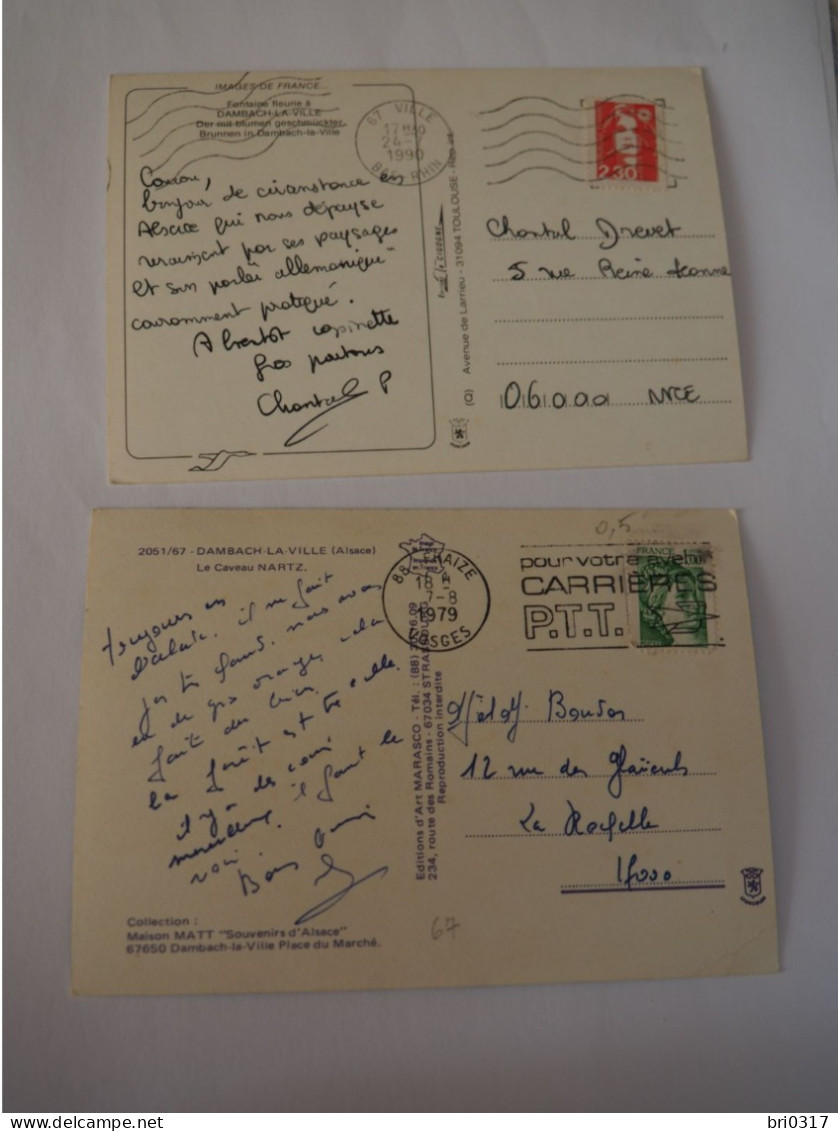 IMAGES DE FRANCE...
Fontaine fleurie à
DAMBACH-LA-VILLE
Der mit blumen geschmückter
Brunnen in Dambach-la-Ville
67 VILLE
24
1990
RHIN
2.30
Coucou,
Bonjour de circonstance en
Alsace qui nous dépayse
par ses paysages
et son parler allemanique
couramment pratiqué.
A bientôt
Gros
Chantal P
Avenue de Larrieu - 31094 TOULOUSE
(Q)
Chantal Drevet
5 rue Reine Jeanne
06000 NICE
2051/67 - DAMBACH-LA-VILLE (Alsace)
Le Caveau NARTZ.
88 FRAIZE
18 H
7-8
1979
VOSGES
0,5
pour votre avenir
CARRIERES
P.T.T.
FRANCE
1.00
toujours en
Alsace. il ne fait
pas très chaud. nous avons
eu de gros orages, cela
fait du bien.
La forêt est très belle
il y a des coins
merveilleux, il faut le
voir.
Editions d'Art MARASCO - Tél. : (88)
234, route des Romains - 67034 STRASBOURG
Reproduction interdite
12 rue des
La Rochelle
17000
Collection :
Maison MATT "Souvenirs d'Alsace"
67650 Dambach-la-Ville Place du Marché.
67
bri0317